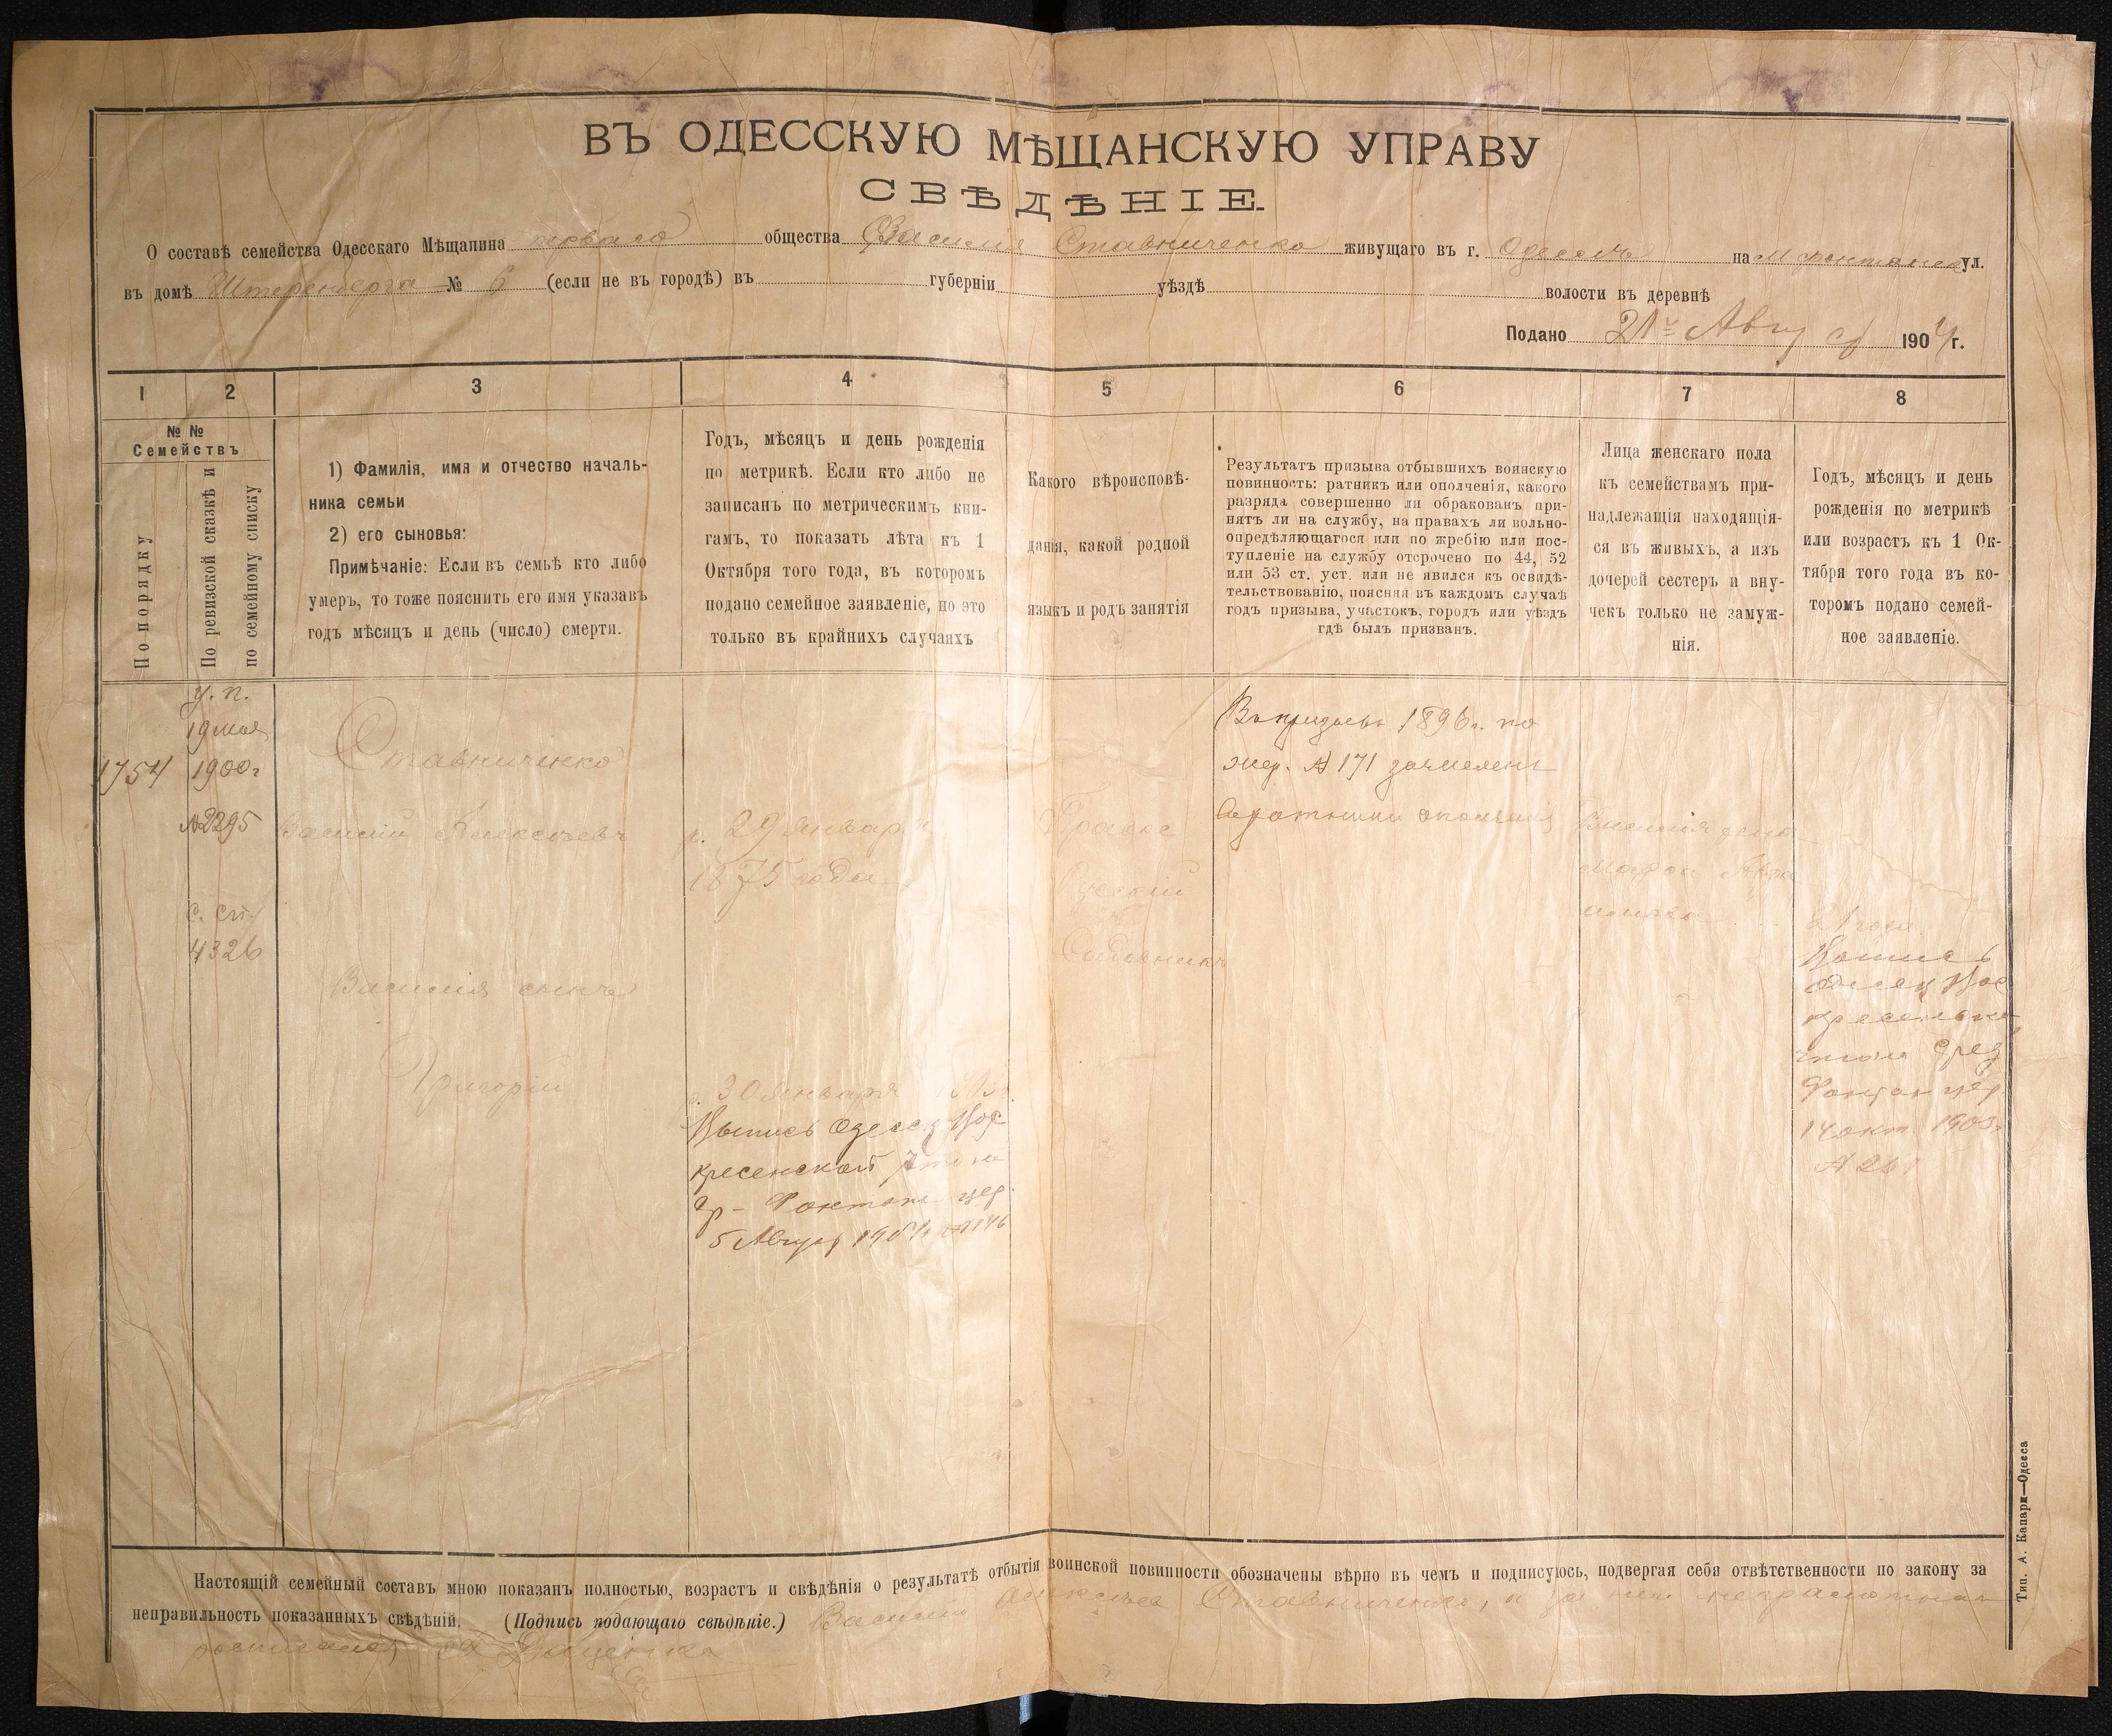 ВЪ ОДЕССКУЮ МѢЩАНСКУЮ УПРАВУ
СВѢДѢНІЕ.
О составѣ семейства Одесскаго Мѣщанина перваго общества Василія Ставниченко живущаго въ г. Одессѣ на М Фонтанск ул.
въ домѣ Штеренберга № 6 (если не въ городѣ) въ губерніи уѣздѣ волости въ деревнѣ
Подано 21го Авгу 1904 г.
1 2 3 4 5 6 7 8
№№
Семействъ
По порядку
По ревизской сказкѣ и
по семейному списку
1) Фамилія, имя и отчество началь-
ника семьи
2) его сыновья:
Примѣчаніе: Если въ семьѣ кто либо
умеръ, то тоже пояснить его имя указавъ
годъ мѣсяцъ и день (число) смерти.
Годъ, мѣсяцъ и день рожденія
по метрикѣ. Если кто либо не
записанъ по метрическимъ кни-
гамъ, то показать лѣта къ 1
Октября того года, въ которомъ
подано семейное заявленіе, но это
только въ крайнихъ случаяхъ
Какого вѣроисповѣ-
данія, какой родной
языкъ и родъ занятія
Результатъ призыва отбывшихъ воинскую
повинность: ратникъ или ополченія, какого
разряда совершенно ли обракованъ при-
нятъ ли на службу, на правахъ ли вольно-
опредѣляющагося или по жребію или пос-
тупленіе на службу отсрочено по 44, 52
или 53 ст. уст. или не явился къ освидѣ-
тельствованію, поясняя въ каждомъ случаѣ
годъ призыва, участокъ, городъ или уѣздъ
гдѣ былъ призванъ.
Лица женскаго пола
къ семействамъ при-
надлежащія находящія-
ся въ живыхъ, а изъ
дочерей сестеръ и вну-
чекъ только не замуж-
нія.
Годъ, мѣсяцъ и день
рожденія по метрикѣ
или возрастъ къ 1 Ок-
тября того года въ ко-
торомъ подано семей-
ное заявленіе.
1754
у. п.
19 мая
1900 г
№ 2295
с. сп.
4326
Ставниченко
Василій Алексѣевъ
Василія сынъ
Григорій
р. 29 Января
1875 года
р. 30 Января
Выпись Одесск Вос
кресенской
Фонтан цер.
5 Август №146
Правос
Русскій
Садовникъ
Въ призывъ 1896 г. по
жер. № 171 зачисленъ
въ ратники ополченія
Василія жена
Марфа
21 года
Выпись
Одесск Вос
кресенской
Сред
Фонтан цер.
14 окт. 1903 г
Настоящій семейный составъ мною показанъ полностью, возрастъ и свѣдѣнія о результатѣ отбытія воинской повинности обозначены вѣрно въ чемъ и подписуюсь, подвергая себя отвѣтственности по закону за
неправильность показанныхъ свѣдѣній. (Подпись подающаго свѣдѣніе.) Василій Алексѣевъ Ставниченко, а за него неграмотнаго
росписался Даценко
Тип. А. Капари—Одесса